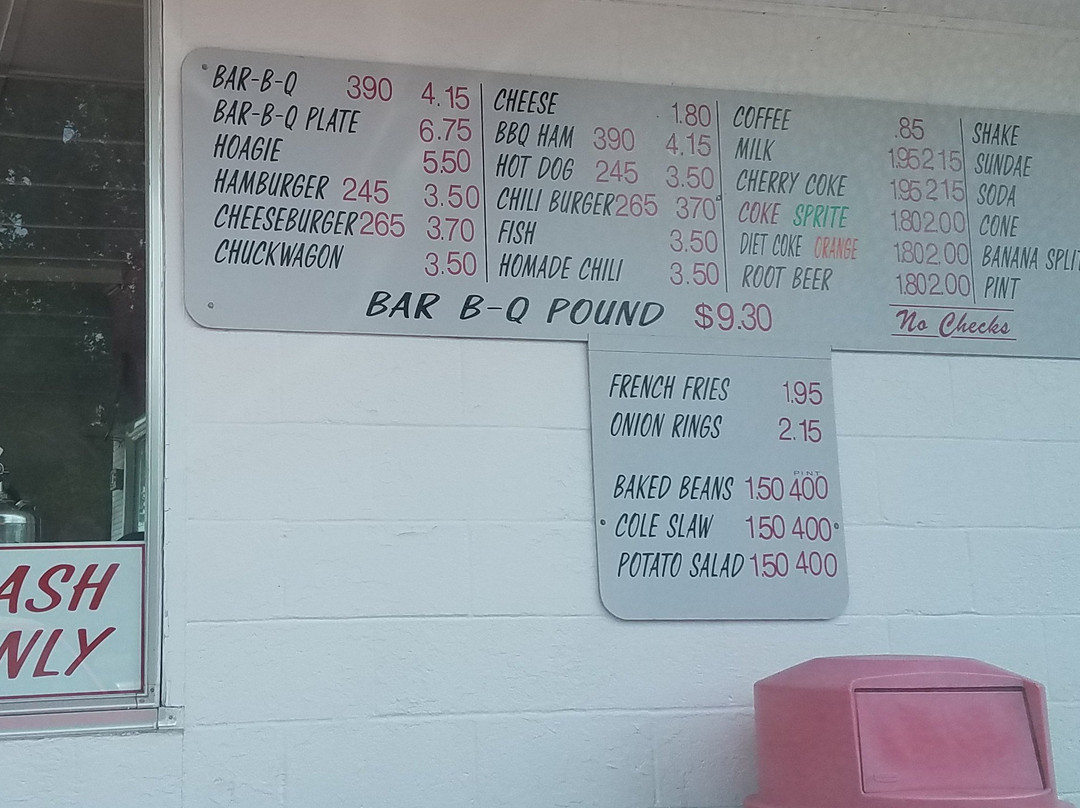 BAR-B-Q 390 4.15
BAR-B-Q PLATE 6.75
HOAGIE 5.50
HAMBURGER 245 3.50
CHEESEBURGER 265 3.70
CHUCKWAGON 3.50
CHEESE 1.80
BBQ HAM 390 4.15
HOT DOG 245 3.50
CHILI BURGER 265 370
FISH 3.50
HOMADE CHILI 3.50
COFFEE .85
MILK 1.95 2.15
CHERRY COKE 1.95 2.15
COKE SPRITE 1.80 2.00
DIET COKE ORANGE 1.80 2.00
ROOT BEER 1.80 2.00
SHAKE
SUNDAE
SODA
CONE
BANANA SPLIT
PINT
BAR B-Q POUND $9.30
No Checks
FRENCH FRIES 1.95
ONION RINGS 2.15
PINT
BAKED BEANS 1.50 400
COLE SLAW 150 400
POTATO SALAD 150 400
ASH
NLY